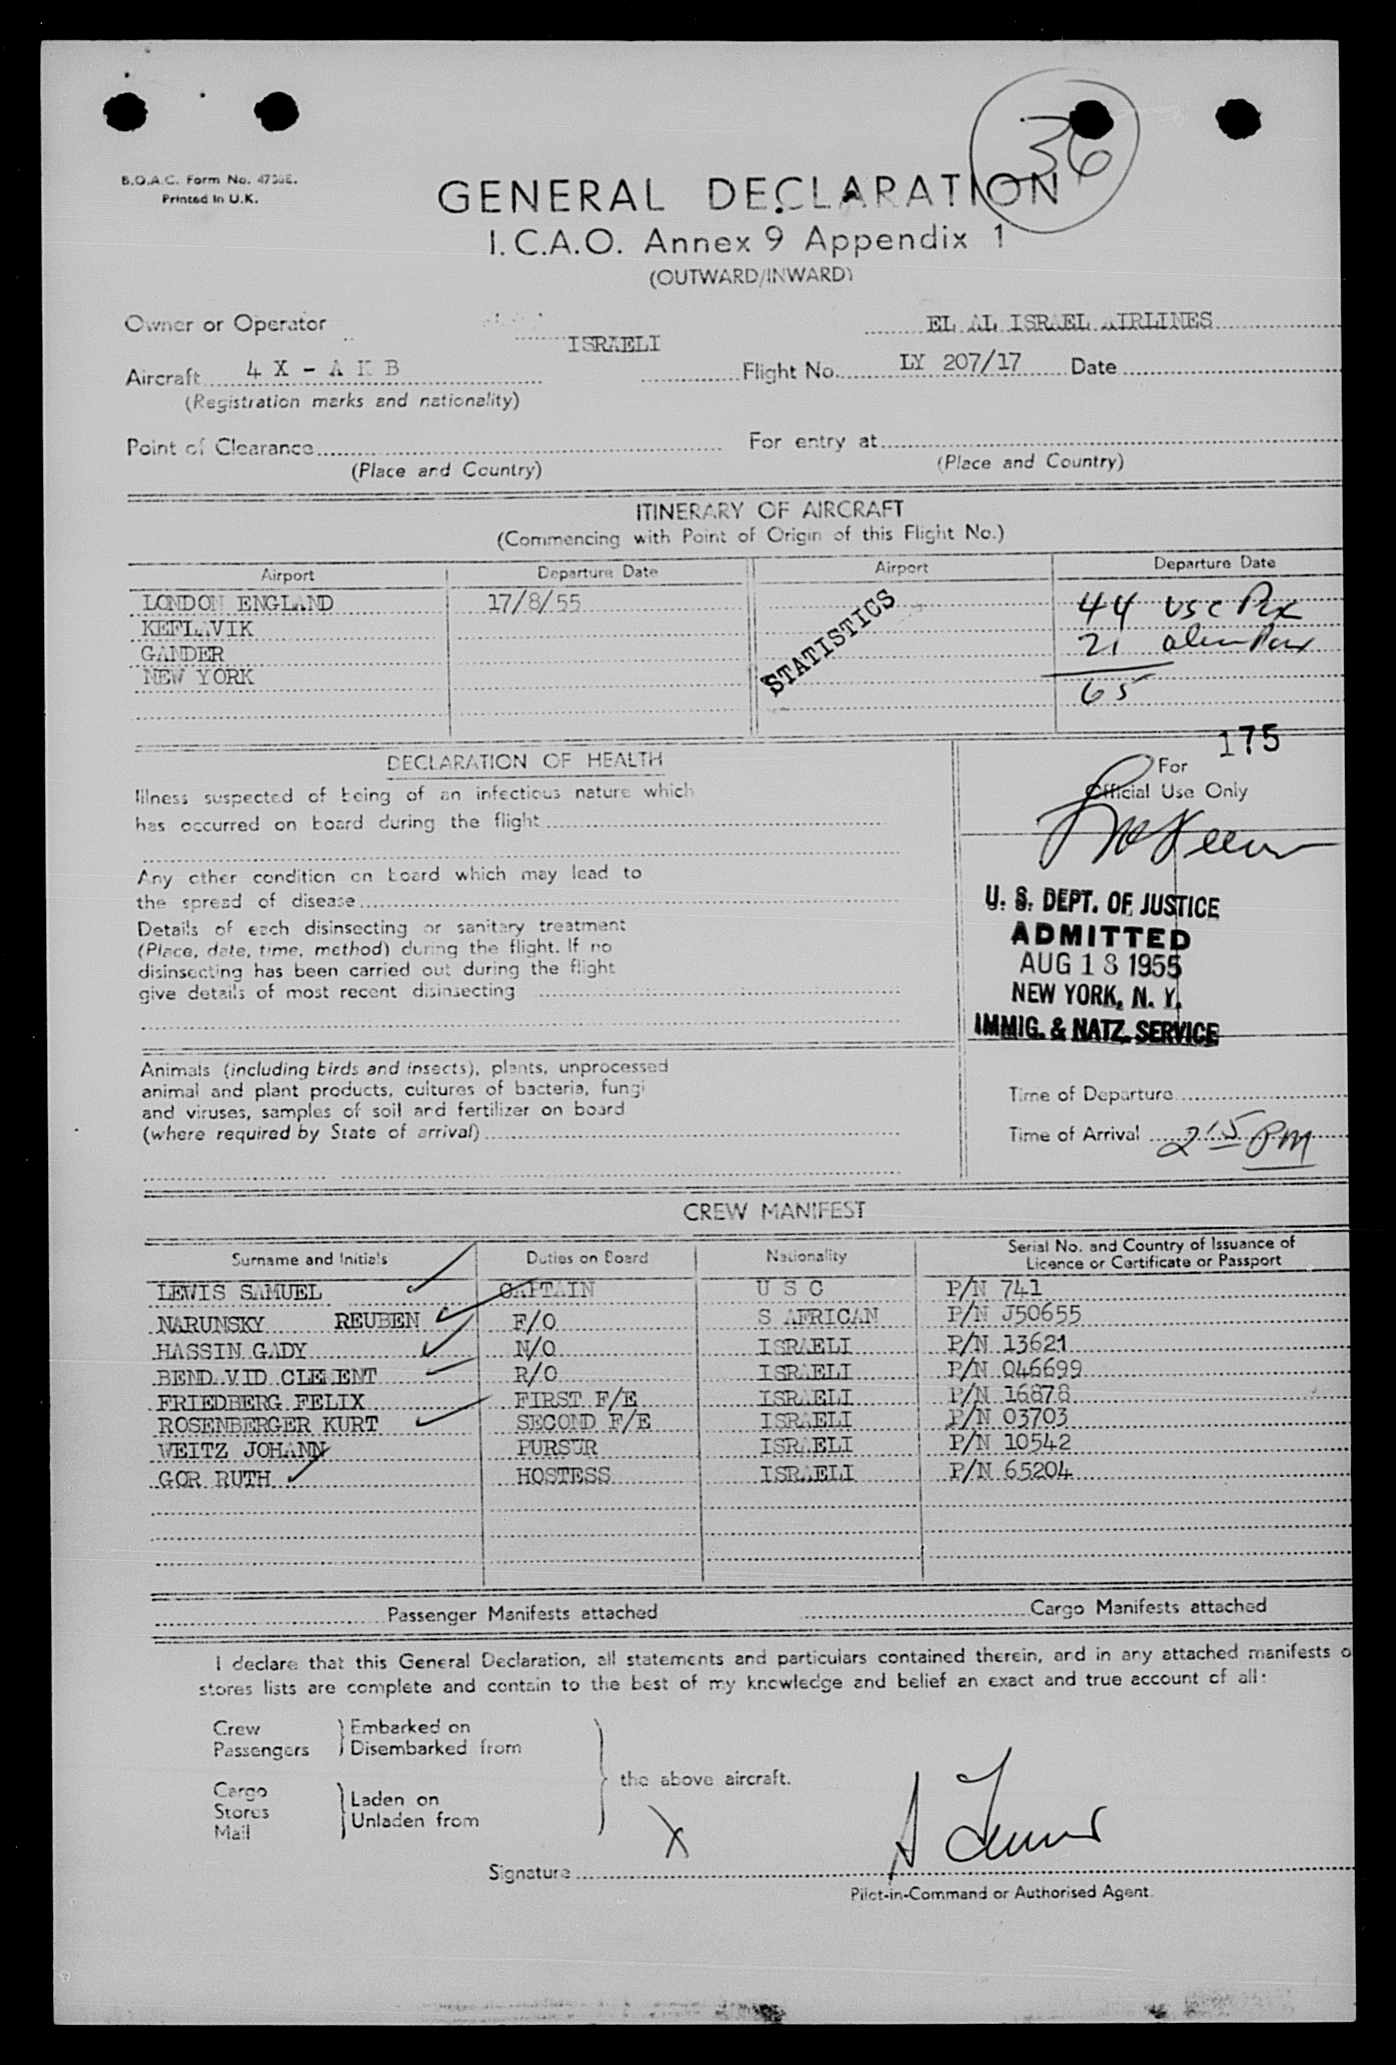 36
B.O.A.C. Form No.
Printed in U.K.
GENERAL DECLARATION
I.C.A.O. Annex 9 Appendix 1
(OUTWARD/INWARD)
Owner or Operator EL AL ISRAEL AIRLINES
ISRAELI
Aircraft 4 X - A K B Flight No. LY 207/17 Date
(Registration marks and nationality)
Point of Clearance For entry at
(Place and Country) (Place and Country)
ITINERARY OF AIRCRAFT
(Commencing with Point of Origin of this Flight No.)
Airport Departure Date Airport Departure Date
LONDON ENGLAND 17/8/55 44 USC Pax
KEFLAVIK
GANDER 21 alien Pax
NEW YORK 65
STATISTICS
175
DECLARATION OF HEALTH
For
Official Use Only
Illness suspected of being of an infectious nature which
has occurred on board during the flight
Any other condition on board which may lead to
the spread of disease
Details of each disinsecting or sanitary treatment
(Place, date, time, method) during the flight. If no
disinsecting has been carried out during the flight
give details of most recent disinsecting
U. S. DEPT. OF JUSTICE
ADMITTED
AUG 18 1955
NEW YORK, N. Y.
IMMIG. & NATZ. SERVICE
Animals (including birds and insects), plants, unprocessed
animal and plant products, cultures of bacteria, fungi
and viruses, samples of soil and fertilizer on board
(where required by State of arrival)
Time of Departure
Time of Arrival 2 15 PM
CREW MANIFEST
Surname and Initials Duties on Board Nationality Serial No. and Country of Issuance of
Licence or Certificate or Passport
LEWIS SAMUEL CAPTAIN U S C P/N 741
NARUNSKY REUBEN F/O S AFRICAN P/N J50655
HASSIN GADY N/O ISRAELI P/N 13621
BENDAVID CLEMENT R/O ISRAELI P/N 046699
FRIEDBERG FELIX FIRST F/E ISRAELI P/N 16878
ROSENBERGER KURT SECOND F/E ISRAELI P/N 03703
WEITZ JOHANN PURSUR ISRAELI P/N 10542
GOR RUTH HOSTESS ISRAELI P/N 65204
Passenger Manifests attached Cargo Manifests attached
I declare that this General Declaration, all statements and particulars contained therein, and in any attached manifests o
stores lists are complete and contain to the best of my knowledge and belief an exact and true account of all:
Crew Embarked on
Passengers Disembarked from
the above aircraft.
Cargo Laden on
Stores Unladen from
Mail
X
Signature
Pilot-in-Command or Authorised Agent.